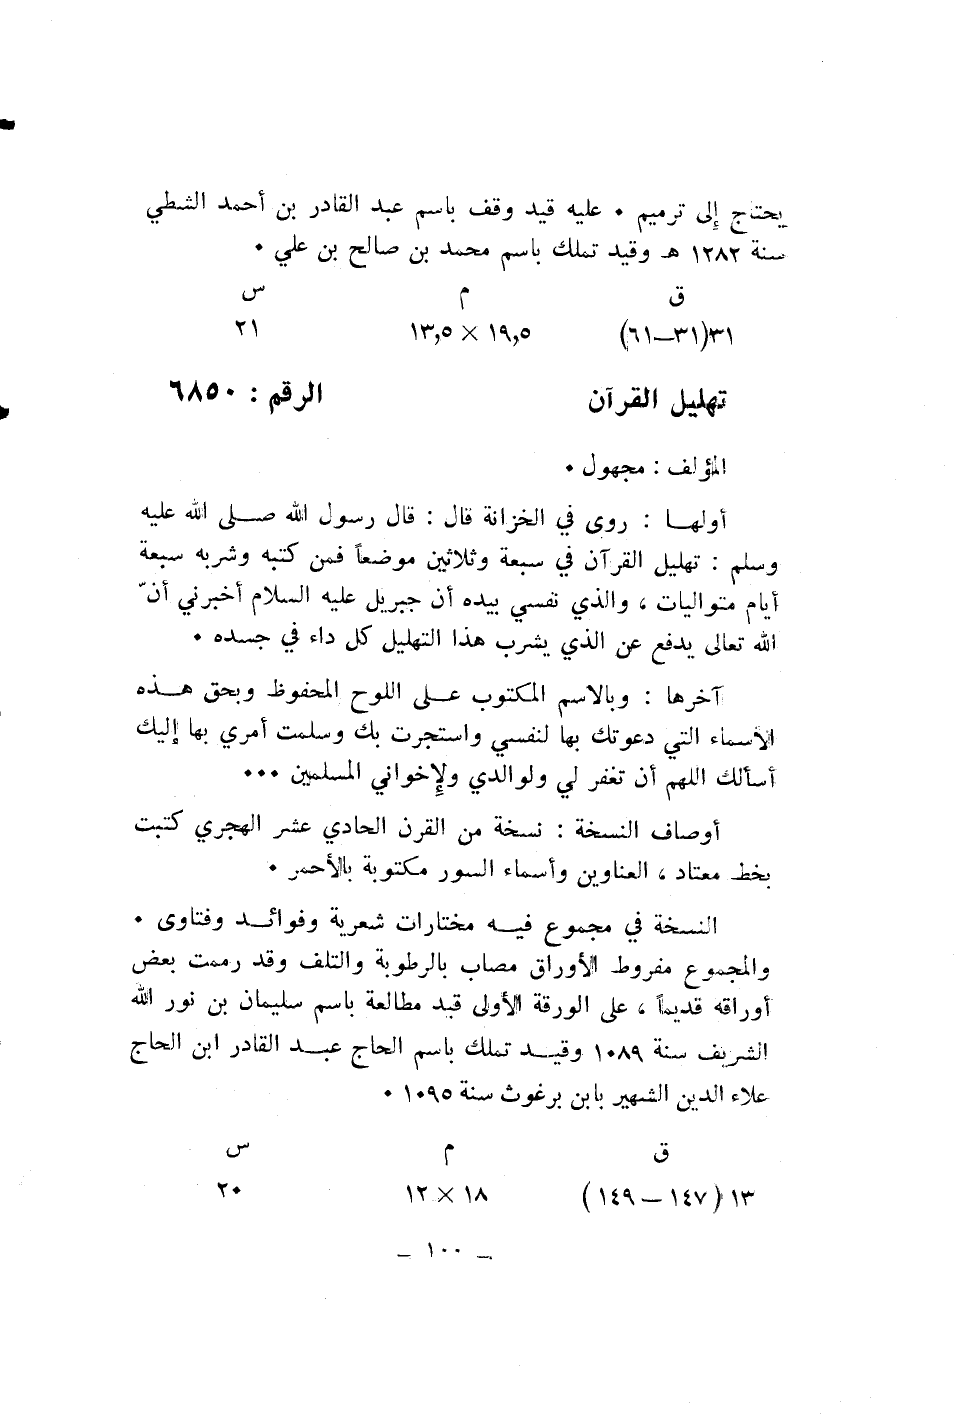 يحتاج إلى ترميم . عليه قيد وقف باسم عبد القادر بن أحمد الشطي
سنة ١٢٨٢ هـ وقيد تملك باسم محمد بن صالح بن علي .
ق م س
٣١(٣١–٦١) ١٩,٥ × ١٣,٥ ٢١
تهليل القرآن الرقم : ٦٨٥٠
المؤلف : مجهول .
أولهـا : روى في الخزانة قال : قال رسول الله صـلى الله عليه
وسلم : تهليل القرآن في سبعة وثلاثين موضعاً فمن كتبه وشربه سبعة
أيام متواليات ، والذي نفسي بيده أن جبريل عليه السلام أخبرني أنّ
الله تعالى يدفع عن الذي يشرب هذا التهليل كل داء في جسده .
آخرها : وبالاسم المكتوب عـلى اللوح المحفوظ وبحق هـذه
الأسماء التي دعوتك بها لنفسي واستجرت بك وسلمت أمري بها إليك
أسألك اللهم أن تغفر لي ولوالدي ولإخواني المسلمين ...
أوصاف النسخة : نسخة من القرن الحادي عشر الهجري كتبت
بخط معتاد ، العناوين وأسماء السور مكتوبة بالأحمر .
النسخة في مجموع فيـه مختارات شعرية وفوائـد وفتاوى .
والمجموع مفروط الأوراق مصاب بالرطوبة والتلف وقد رممت بعض
أوراقه قديماً ، على الورقة الأولى قيد مطالعة باسم سليمان بن نور الله
الشريف سنة ١٠٨٩ وقيـد تملك باسم الحاج عبـد القادر ابن الحاج
علاء الدين الشهير بابن برغوث سنة ١٠٩٥ .
ق م س
١٣ (١٤٧ – ١٤٩) ١٨ × ١٢ ٢٠
– ١٠٠ –